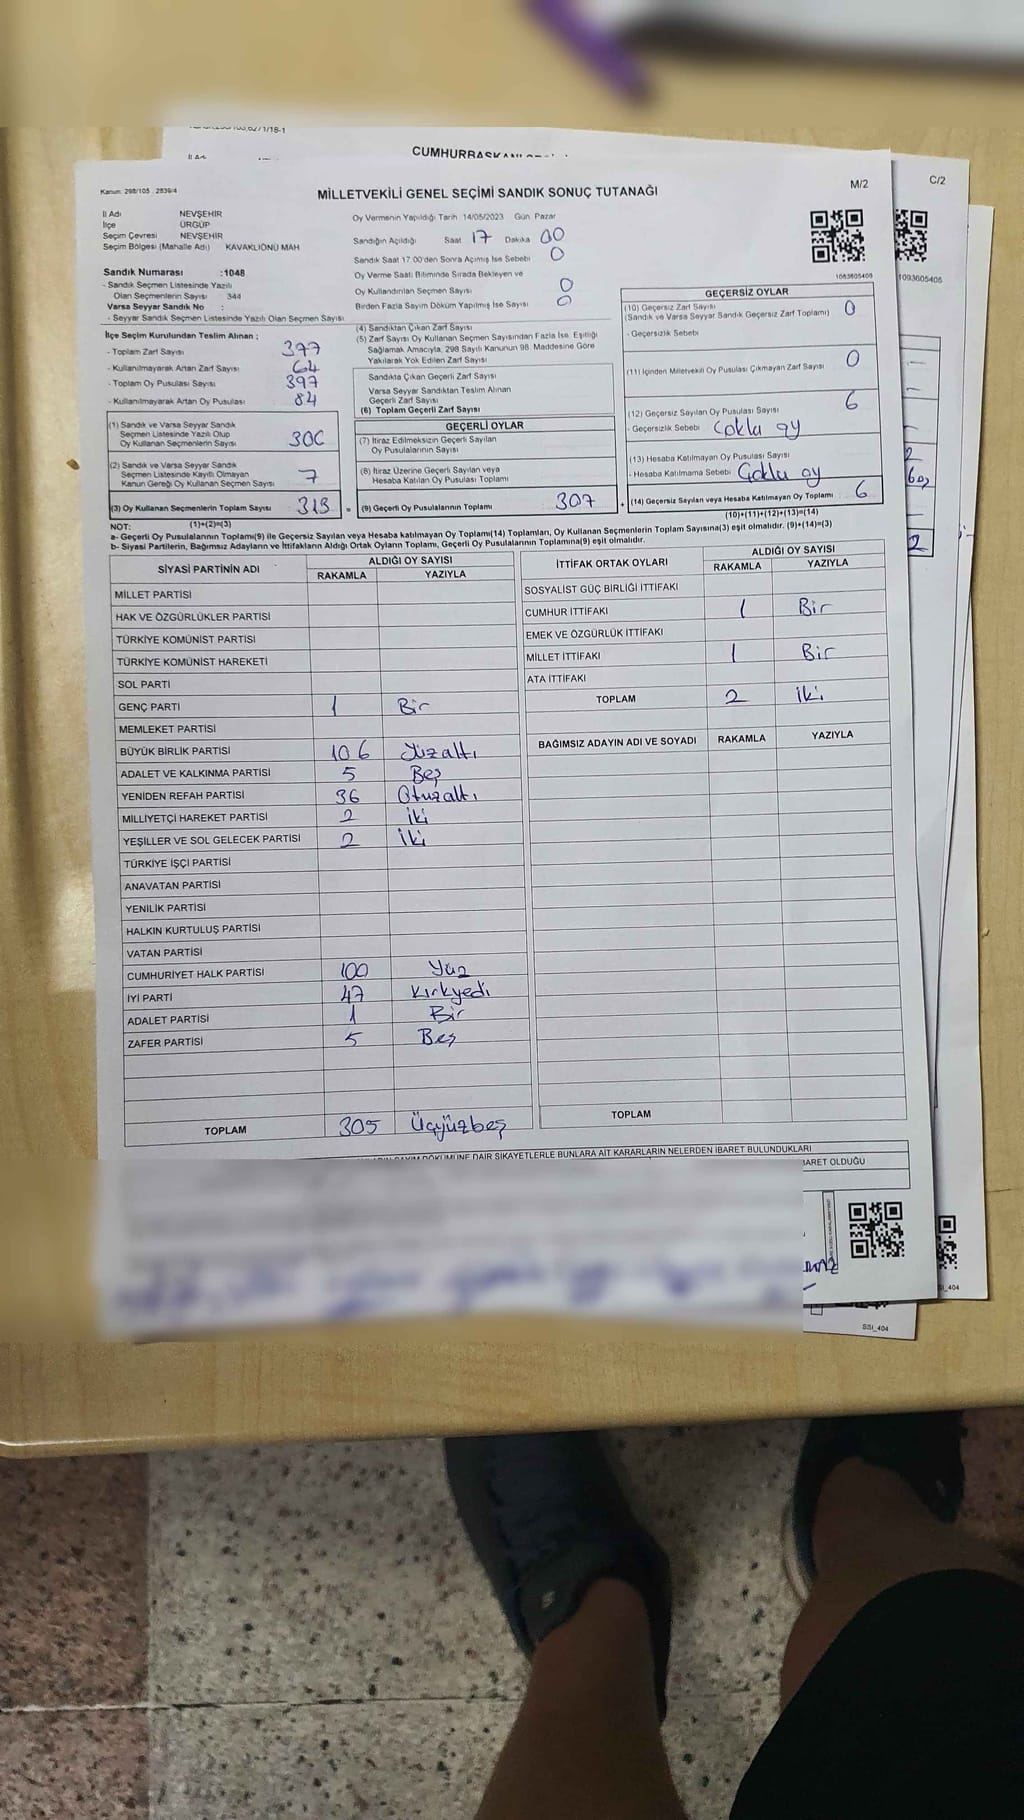 CUMHURBAŞKANI
C/2
Kanun: 298/105 , 2839/4
MİLLETVEKİLİ GENEL SEÇİMİ SANDIK SONUÇ TUTANAĞI
M/2
İl Adı NEVŞEHİR
İlçe ÜRGÜP
Seçim Çevresi NEVŞEHİR
Seçim Bölgesi (Mahalle Adı) KAVAKLIÖNÜ MAH
Sandık Numarası :1048
- Sandık Seçmen Listesinde Yazılı
Olan Seçmenlerin Sayısı 344
Varsa Seyyar Sandık No :
- Seyyar Sandık Seçmen Listesinde Yazılı Olan Seçmen Sayısı
Oy Vermenin Yapıldığı Tarih 14/05/2023 Gün Pazar
Sandığın Açıldığı Saat 17 Dakika 00
Sandık Saat 17.00'den Sonra Açılmış İse Sebebi 0
Oy Verme Saati Bitiminde Sırada Bekleyen ve
Oy Kullandırılan Seçmen Sayısı 0
Birden Fazla Sayım Döküm Yapılmış İse Sayısı 0
1093605406
İlçe Seçim Kurulundan Teslim Alınan ;
- Toplam Zarf Sayısı 377
- Kullanılmayarak Artan Zarf Sayısı 64
- Toplam Oy Pusulası Sayısı 397
- Kullanılmayarak Artan Oy Pusulası 84
(1) Sandık ve Varsa Seyyar Sandık
Seçmen Listesinde Yazılı Olup
Oy Kullanan Seçmenlerin Sayısı 306
(2) Sandık ve Varsa Seyyar Sandık
Seçmen Listesinde Kayıtlı Olmayan
Kanun Gereği Oy Kullanan Seçmen Sayısı 7
(3) Oy Kullanan Seçmenlerin Toplam Sayısı 313 =
(1)+(2)=(3)
(4) Sandıktan Çıkan Zarf Sayısı
(5) Zarf Sayısı Oy Kullanan Seçmen Sayısından Fazla İse, Eşitliği
Sağlamak Amacıyla, 298 Sayılı Kanunun 98. Maddesine Göre
Yakılarak Yok Edilen Zarf Sayısı
Sandıkta Çıkan Geçerli Zarf Sayısı
Varsa Seyyar Sandıktan Teslim Alınan
Geçerli Zarf Sayısı
(6) Toplam Geçerli Zarf Sayısı
GEÇERLİ OYLAR
(7) İtiraz Edilmeksizin Geçerli Sayılan
Oy Pusulalarının Sayısı
(8) İtiraz Üzerine Geçerli Sayılan veya
Hesaba Katılan Oy Pusulası Toplamı
(9) Geçerli Oy Pusulalarının Toplamı 307 +
GEÇERSİZ OYLAR
(10) Geçersiz Zarf Sayısı
(Sandık ve Varsa Seyyar Sandık Geçersiz Zarf Toplamı) 0
- Geçersizlik Sebebi
(11) İçinden Milletvekili Oy Pusulası Çıkmayan Zarf Sayısı 0
(12) Geçersiz Sayılan Oy Pusulası Sayısı 6
- Geçersizlik Sebebi Çoklu oy
(13) Hesaba Katılmayan Oy Pusulası Sayısı
- Hesaba Katılmama Sebebi Çoklu oy
(14) Geçersiz Sayılan veya Hesaba Katılmayan Oy Toplamı 6
(10)+(11)+(12)+(13)=(14)
NOT:
a- Geçerli Oy Pusulalarının Toplamı(9) ile Geçersiz Sayılan veya Hesaba katılmayan Oy Toplamı(14) Toplamları, Oy Kullanan Seçmenlerin Toplam Sayısına(3) eşit olmalıdır. (9)+(14)=(3)
b- Siyasi Partilerin, Bağımsız Adayların ve İttifakların Aldığı Ortak Oyların Toplamı, Geçerli Oy Pusulalarının Toplamına(9) eşit olmalıdır.
SİYASİ PARTİNİN ADI ALDIĞI OY SAYISI
RAKAMLA YAZIYLA
MİLLET PARTİSİ
HAK VE ÖZGÜRLÜKLER PARTİSİ
TÜRKİYE KOMÜNİST PARTİSİ
TÜRKİYE KOMÜNİST HAREKETİ
SOL PARTİ
GENÇ PARTİ 1 Bir
MEMLEKET PARTİSİ
BÜYÜK BİRLİK PARTİSİ 106 Yüzaltı
ADALET VE KALKINMA PARTİSİ 5 Beş
YENİDEN REFAH PARTİSİ 36 Otuzaltı
MİLLİYETÇİ HAREKET PARTİSİ 2 İki
YEŞİLLER VE SOL GELECEK PARTİSİ 2 İki
TÜRKİYE İŞÇİ PARTİSİ
ANAVATAN PARTİSİ
YENİLİK PARTİSİ
HALKIN KURTULUŞ PARTİSİ
VATAN PARTİSİ
CUMHURİYET HALK PARTİSİ 100 Yüz
İYİ PARTİ 47 Kırkyedi
ADALET PARTİSİ 1 Bir
ZAFER PARTİSİ 5 Beş
TOPLAM 305 Üçyüzbeş
İTTİFAK ORTAK OYLARI ALDIĞI OY SAYISI
RAKAMLA YAZIYLA
SOSYALİST GÜÇ BİRLİĞİ İTTİFAKI
CUMHUR İTTİFAKI 1 Bir
EMEK VE ÖZGÜRLÜK İTTİFAKI
MİLLET İTTİFAKI 1 Bir
ATA İTTİFAKI
TOPLAM 2 İki
BAĞIMSIZ ADAYIN ADI VE SOYADI RAKAMLA YAZIYLA
TOPLAM
DÖKÜMÜNE DAİR ŞİKAYETLERLE BUNLARA AİT KARARLARIN NELERDEN İBARET BULUNDUKLARI
İBARET OLDUĞU
1093605406
SSI_404
SSI_404